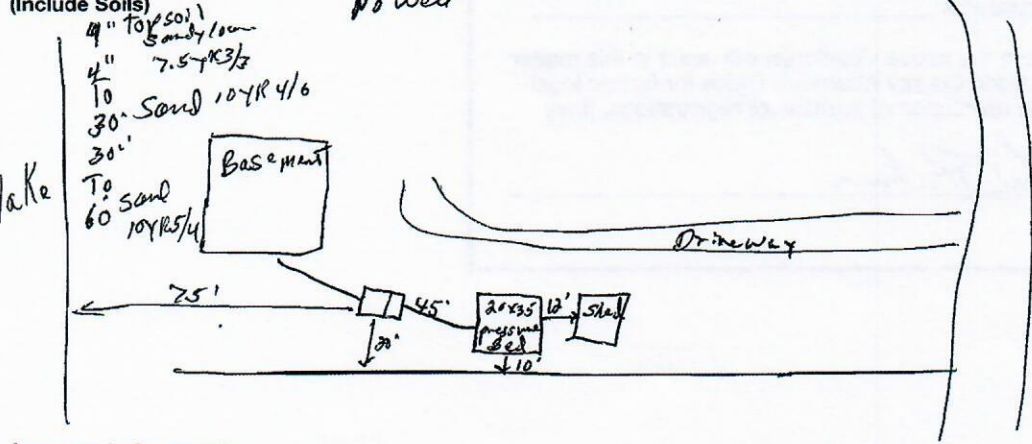 (Include Soils)
No Well
4" Topsoil
Sandy loam
7.5YR3/3
4"
To
30" Sand 10YR 4/6
30"
To
60" Sand
10YR5/4
Lake
Basement
Driveway
75'
45'
20x35
pressure
Bed
12'
Shed
20'
10'